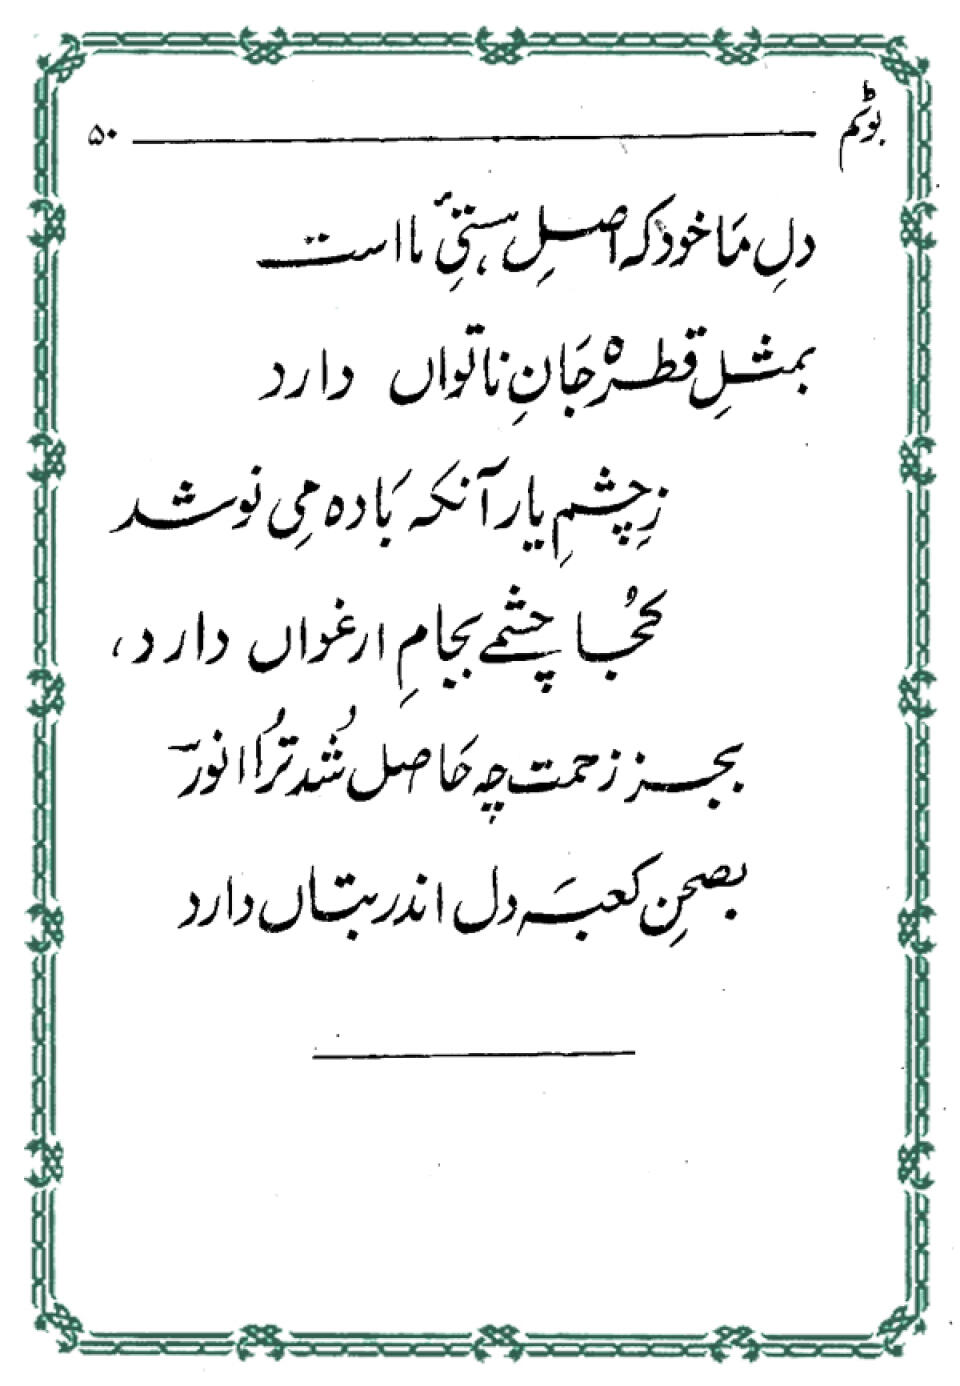 بوٹم ۵۰
دلِ مَا خود که اصلِ ہستیٔ ما است
بمثلِ قطرہ جَانِ ناتواں دارد
زِچشمِ یار آنکہ بَادہ مِی نوشد
کجُا چشمے بجامِ ارغواں دارد،
بجز زحمت چہ حَاصل شُد تُرا انورؔ
بصحنِ کعبَہ دل اندر بتاں دارد